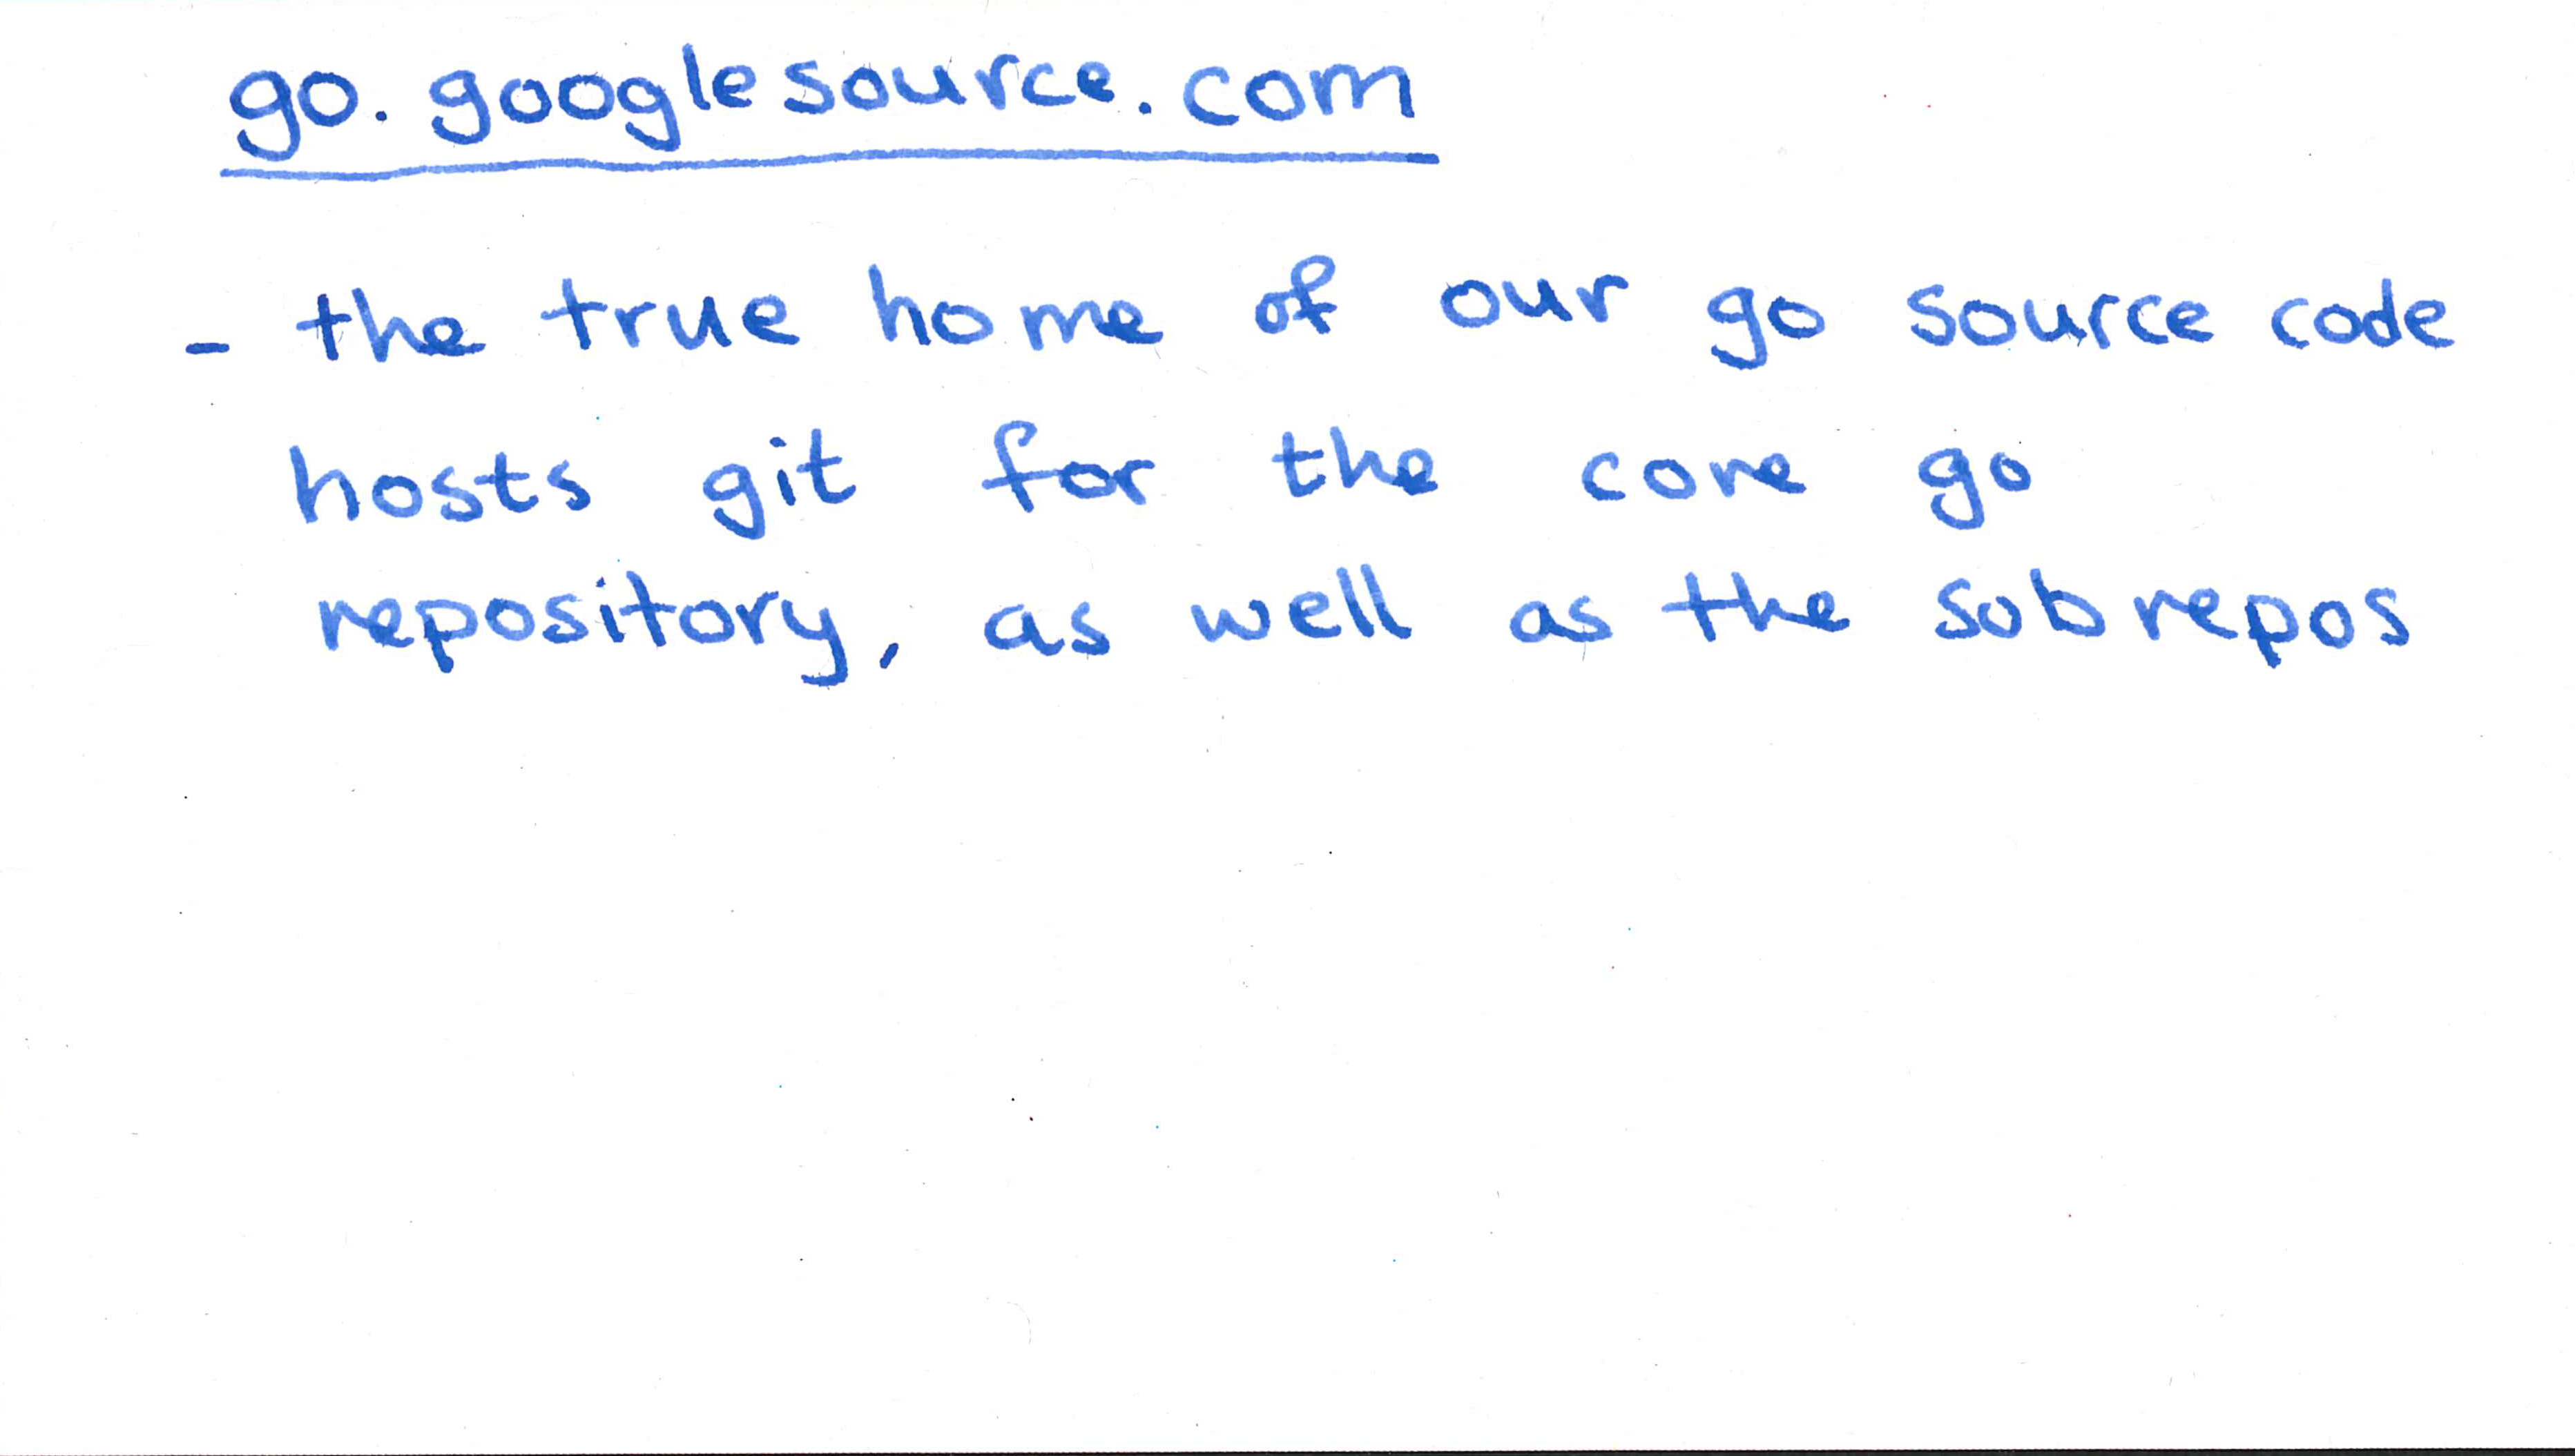 go.googlesource.com
- the true home of our go source code
hosts git for the core go
repository, as well as the subrepos